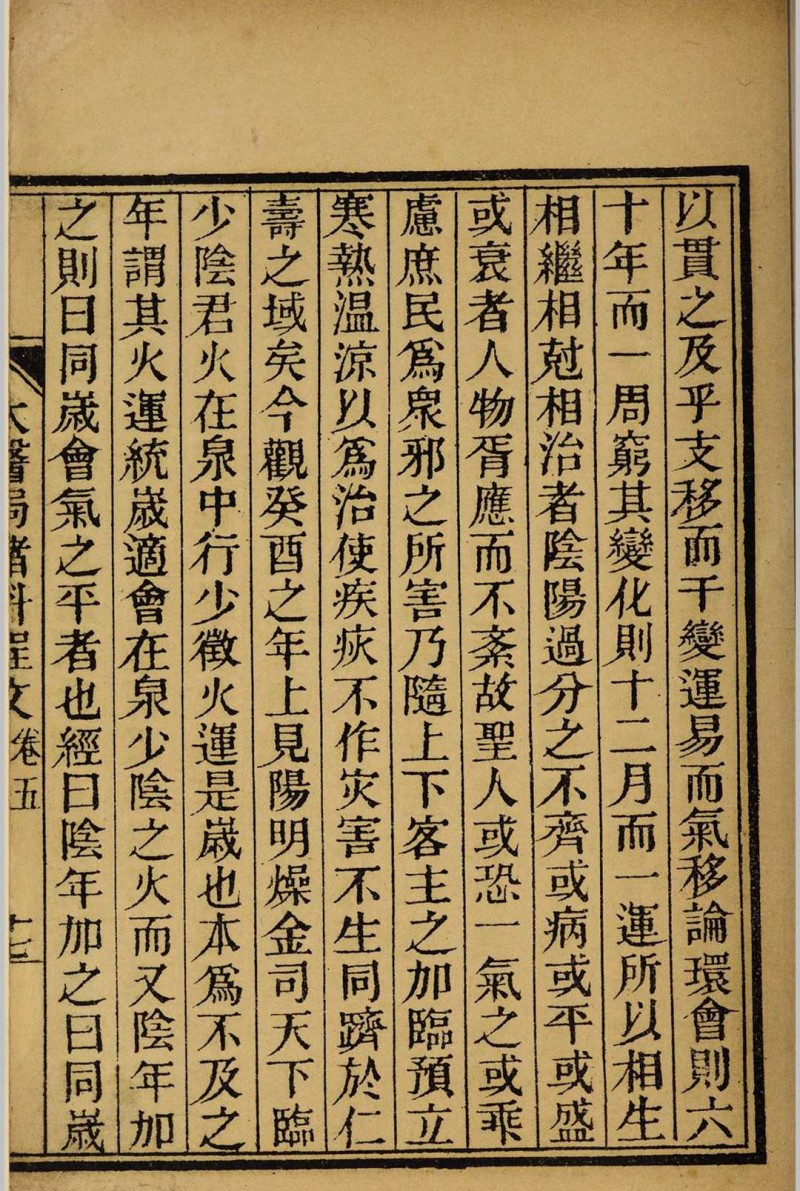 以貫之及乎支移而干變運易而氣移論環會則六
十年而一周窮其變化則十二月而一運所以相生
相繼相尅相治者陰陽過分之不齊或病或平或盛
或衰者人物胥應而不紊故聖人或恐一氣之或乖
慮庶民爲衆邪之所害乃隨上下客主之加臨預立
寒熱温凉以爲治使疾疢不作灾害不生同躋於仁
壽之域矣今觀癸酉之年上見陽明燥金司天下臨
少陰君火在泉中行少徵火運是歲也本爲不及之
年謂其火運統歲適會在泉少陰之火而又陰年加
之則曰同歲會氣之平者也經曰陰年加之曰同歲
太醫局諸科程文 卷五 十七